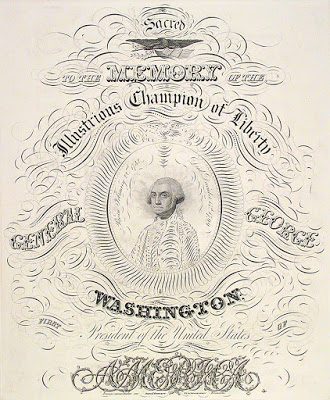 Sacred
TO THE MEMORY OF THE
Illustrious Champion of Liberty
GENERAL GEORGE
WASHINGTON.
FIRST President of the United States OF
AMERICA